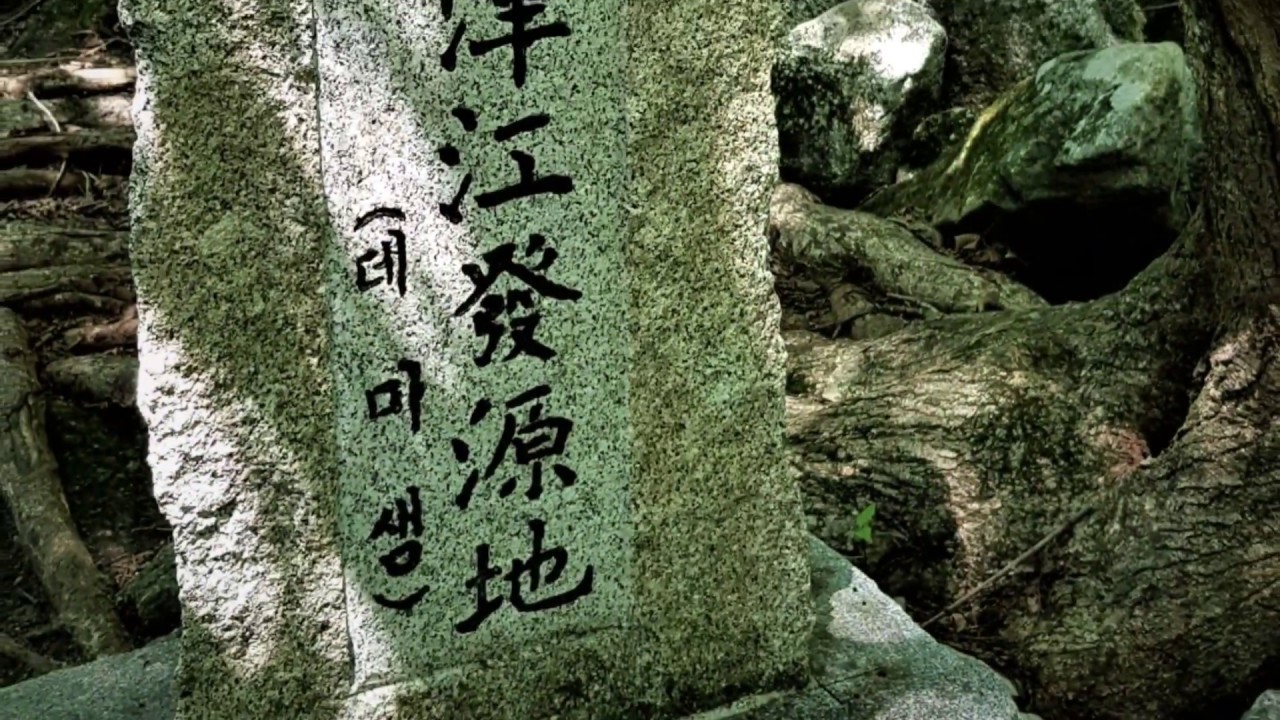 津江發源地
(데미샘)